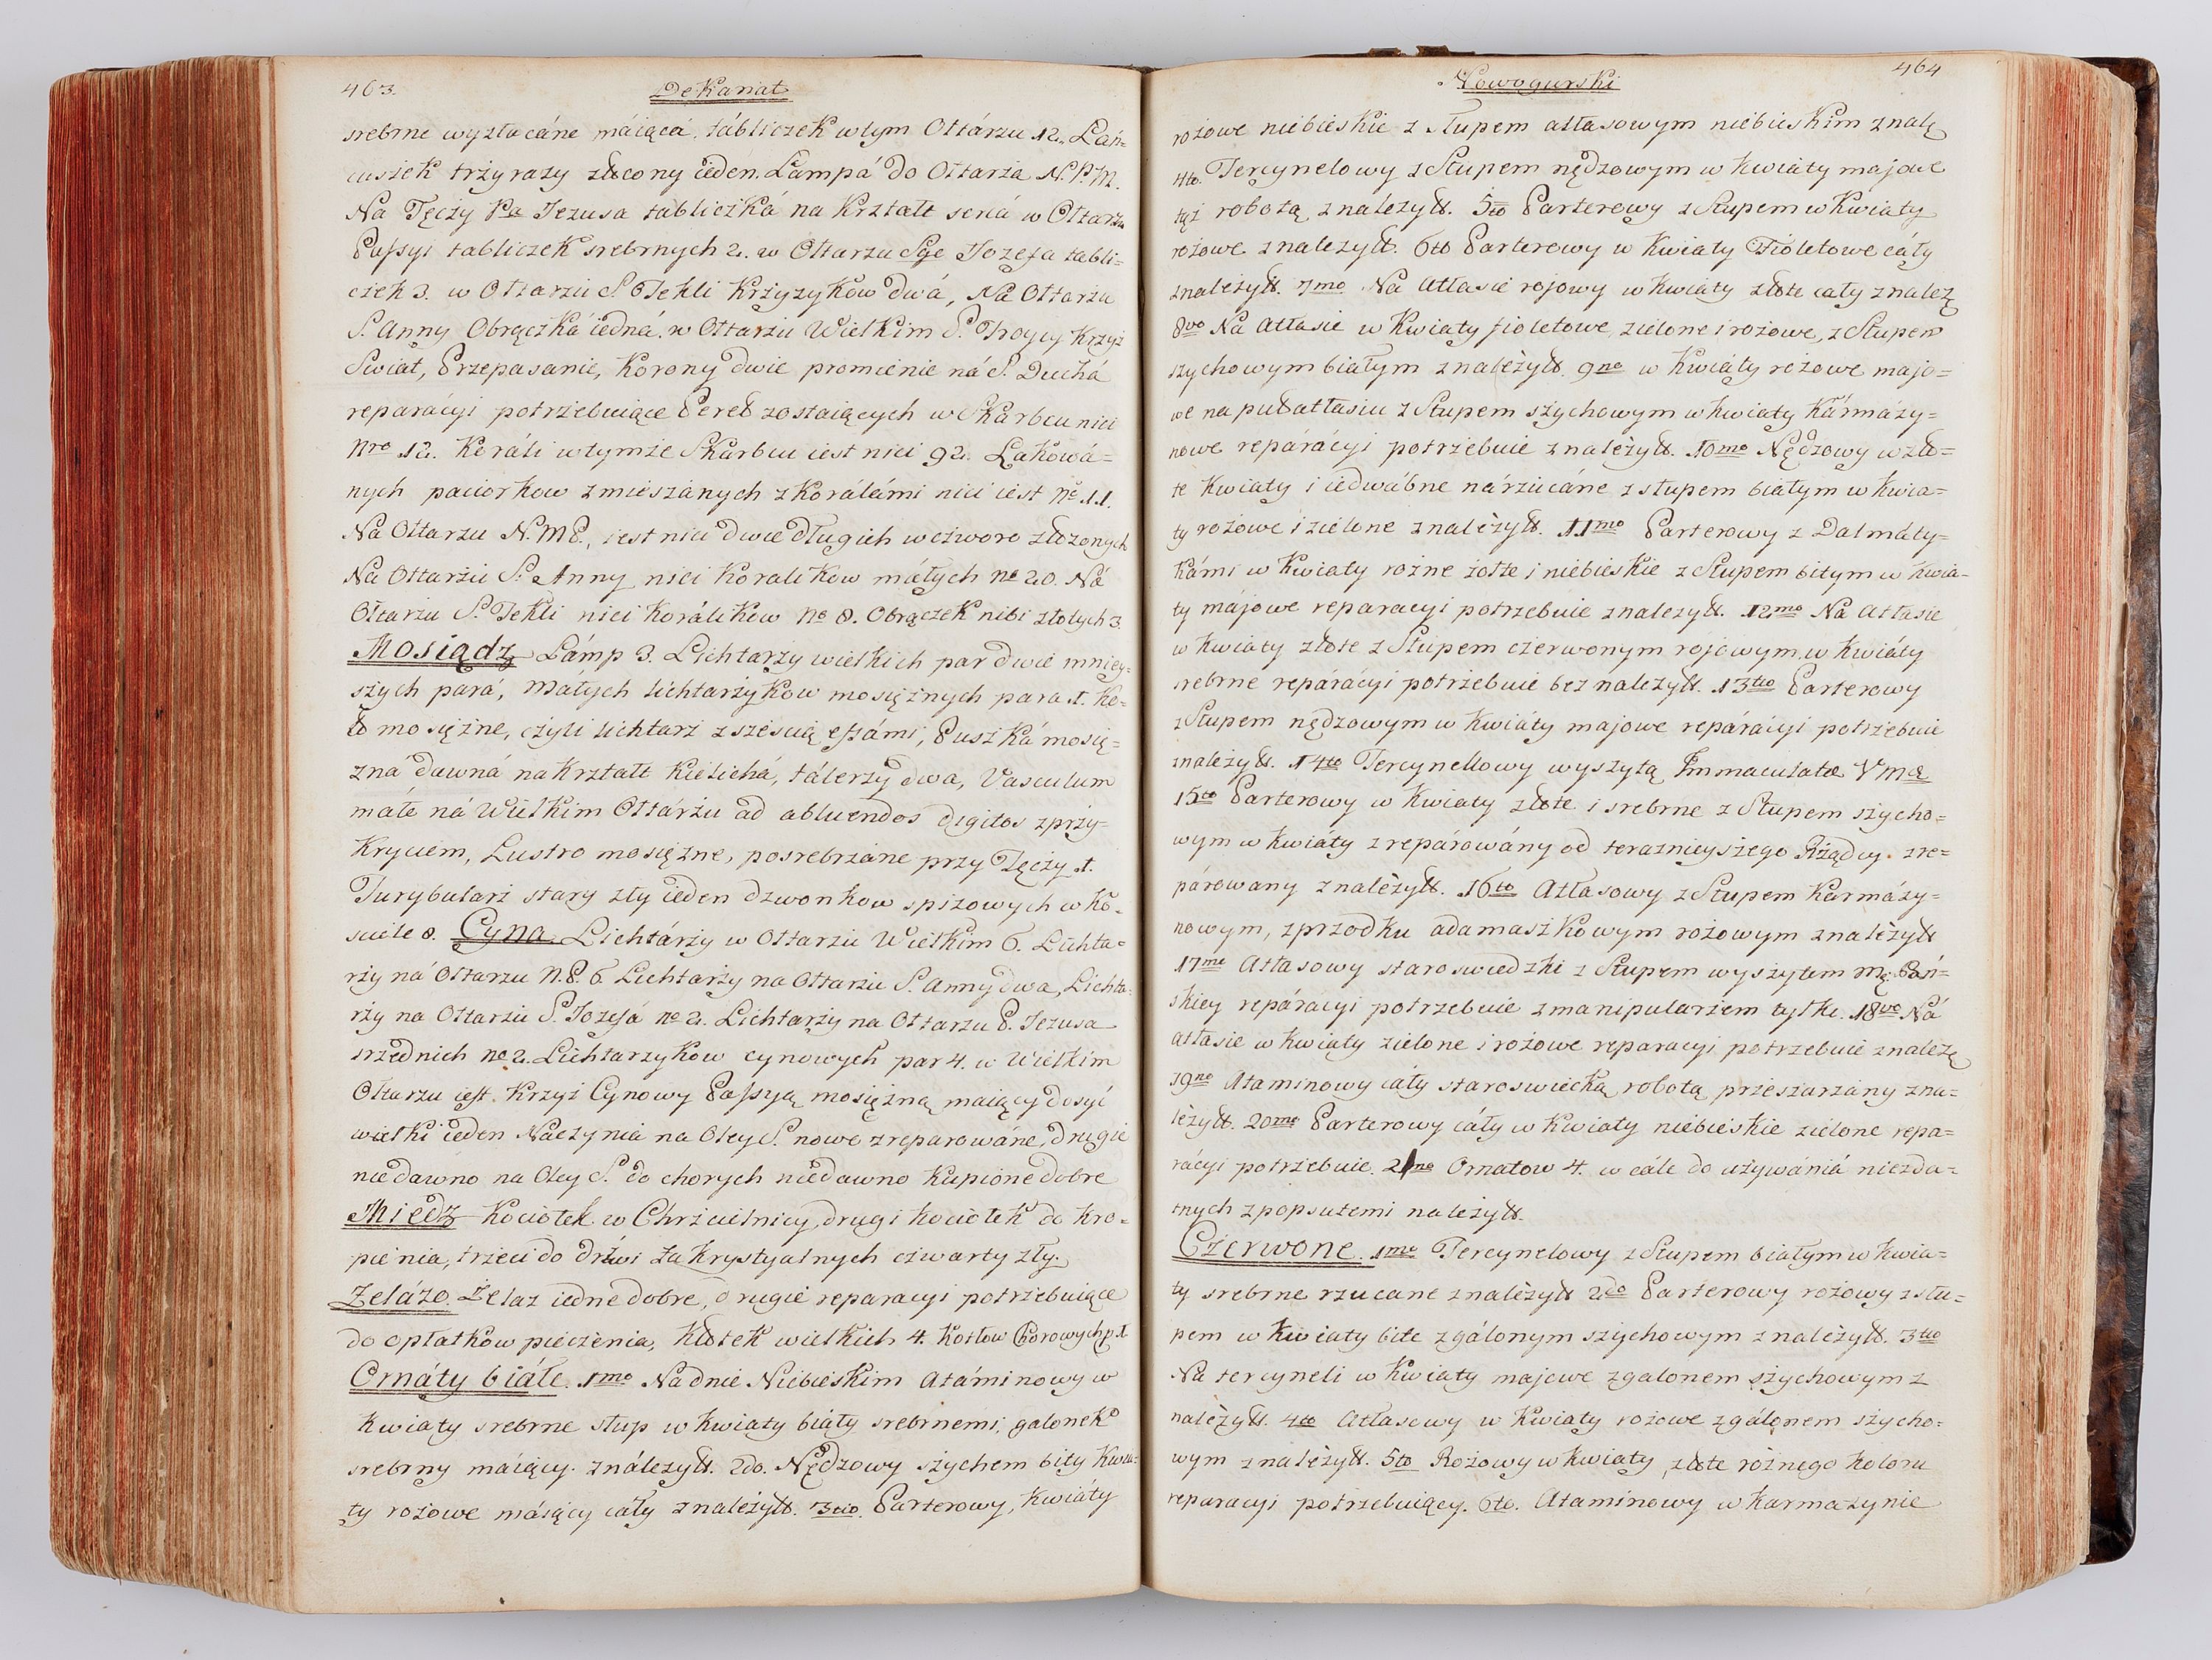 463.
Dekanat
srebrne wyzłacáne máiącá, tábliczek wtym Ołtárzu 12. Łań=
cuszek trzy razy złocony ieden. Lampá do Ołtarza N.P.M.
Na Tęczy Pa Jezusa tabliczká na krztałt sercá w Ołtarzu
Passyi tabliczek srebrnych 2. w Ołtarzu Sgo Jozefa tabli=
czek 3. w Ołtarzu S Tekli krzyzykow dwá, Na Ołtarzu
S. Anny Obrączká iedná. w Ołtarzu Wielkim S. Troycy krzyż
Swiat, Przepasanie, korony dwie promienie ná S. Duchá
reparácyi potrzebuiące Pereł zostaiących w Skarbcu nici
Nro 12. koráli wtymże Skarbcu iest nici 92. Łąkowá=
nych paciorkow zmieszánych z korálámi nici iest No 11.
Na Ołtarzu N.M.P., iest nici dwie długich wczworo złożonych
Na Ołtarzu S. Anny nici koralikow máłych No 20. Ná
Ołtarzu S. Tekli nici korálikow No 8. Obrączek nibi złotych 3.
Mosiądz Lámp 3. Lichtarzy wielkich par dwie mniey=
szych pará, Máłych lichtarzykow mosiężnych para 1. Ko=
ło mosiężne, czyli lichtarz z sześcią essámi, Puszká mosię=
zna dawná na krztałt kielichá, tálerzy dwa, Vasculum
małe ná Wielkim Ołtárzu ad abluendos digitos z przy=
kryciem, Lustro mosiężne, posrebrzáne przy Tęczy 1.
Turybularz stary zły ieden dzwonkow spiżowych w Ko=
sciele 8. Cyna Lichtárzy w Ołtarzu Wielkim 6. Lichta=
rzy ná Ołtarzu N.P. 6 Lichtarzy na Ołtarzu S. Anny dwa, Lichta=
rzy na Ołtarzu S. Jozefá No 2. Lichtarzy na Ołtarzu P. Jezusa
srzednich No 2. Lichtarzykow cynowych par 4. w Wielkim
Ołtarzu iest krzyż Cynowy Passyą mosiężną maiący dosyć
wielki ieden Naczynia na Oley S. nowe zreparowáne, drugie
niedawno na Oley S. do chorych niedawno kupione dobre
Miedz kociołek w Chrzcielnicy, drugi kociołek do kro=
pienia, trzeci do drzwi Zakrystyalnych czwarty zły.
Zelázo. Żelaz iedne dobre, drugie reparacyi potrzebuiące
do opłatków pieczenia, kłotek wielkich 4. kotłow Chorowych p. 1
Ornáty białe. 1mo Na dnie Niebieskim Atáminowy w
kwiaty srebrne słup w kwiaty biały srebrnemi, galonek
srebrny máiący. ználezył. 2do. Nędzowy szychem bity kwia=
ty rożowe máiący cały z należył. 3tio. Parterowy, kwiáty
464
Nowogurski
rożowe niebieskie z słupem atłasowym niebieskim znalę
4to. Tercynelowy z Słupem nędzowym w kwiáty majowe
tąż robotą z nalezył. 5to Parterowy z Słupem w kwiaty
rożowe z nalezył. 6to Parterowy w kwiaty Fioletowe cáły
z należył. 7mo Na Atłasie rojowy w kwiaty złote cały z należę
8vo Na Atłasie w kwiaty fioletowe zielone i rożowe, z Słupem
szychowym białym z należył. 9no w kwiáty rożowe majo=
we na pułatłasiu z Słupem szychowym w kwiaty kármázy=
nowe reparácyi potrzebuie z należył. 10mo Nędzowy w zło=
te kwiaty i iedwábne nárzucáne z słupem białym w kwia=
ty rożowe i zielone z należył. 11mo Parterowy z Dalmáty=
kámi w kwiaty rożne żołte i niebieskie z Słupem bitym w kwia=
ty májowe reparacyi potrzebuie z nalezył. 12mo Na Atłasie
w kwiaty złote z Słupem czerwonym rojowym w kwiáty
srebrne reparácyi potrzebuie bez nalezył. 13tio Parterowy
z Słupem nędzowym w kwiáty majowe reparácyi potrzebuie
z należył. 14to Tercynellowy wyszytą Immaculatæ V Mæ
15to Parterowy w kwiaty złote i srebrne z Słupem szycho=
wym w kwiáty z reparowány od teraznieyszego Rządcy. zre=
párowany z należył. 16to Atłasowy z Słupem karmázy=
nowym, z przodku adamaszkowym rożowym z należył
17mo Atłasowy staroswiedzki z Słupem wyszytem Mę Pań=
skiey repárácyi potrzebuie z manipularzem tylko. 18vo Ná
atłasie w kwiaty zielone i rożowe reparacyi potrzebuie z należę
19no Ataminowy cáły staroswiecką robotą przeszarzany zna=
leżył. 20mo Parterowy cáły w kwiaty niebieskie zielone repa=
rácyi potrzebuie. 21no Ornatow 4. w cále do używániá niezda=
tnych z popsutemi należył.
Czerwone. 1mo Tercynelowy z Słupem białym w kwia=
ty srebrne rzucane z należył 2do Parterowy rożowy z słu=
pem w kwiaty bite z gálonym szychowym z należył. 3tio
Na tercyneli w kwiaty majowe z galonem szychowym z
należył. 4to Atłasowy w kwiaty rożowe z gálonem szycho=
wym z należył. 5to Rożowy w kwiaty złote różnego koloru
reparacyi potrzebuiący. 6to. Ataminowy w karmazynie